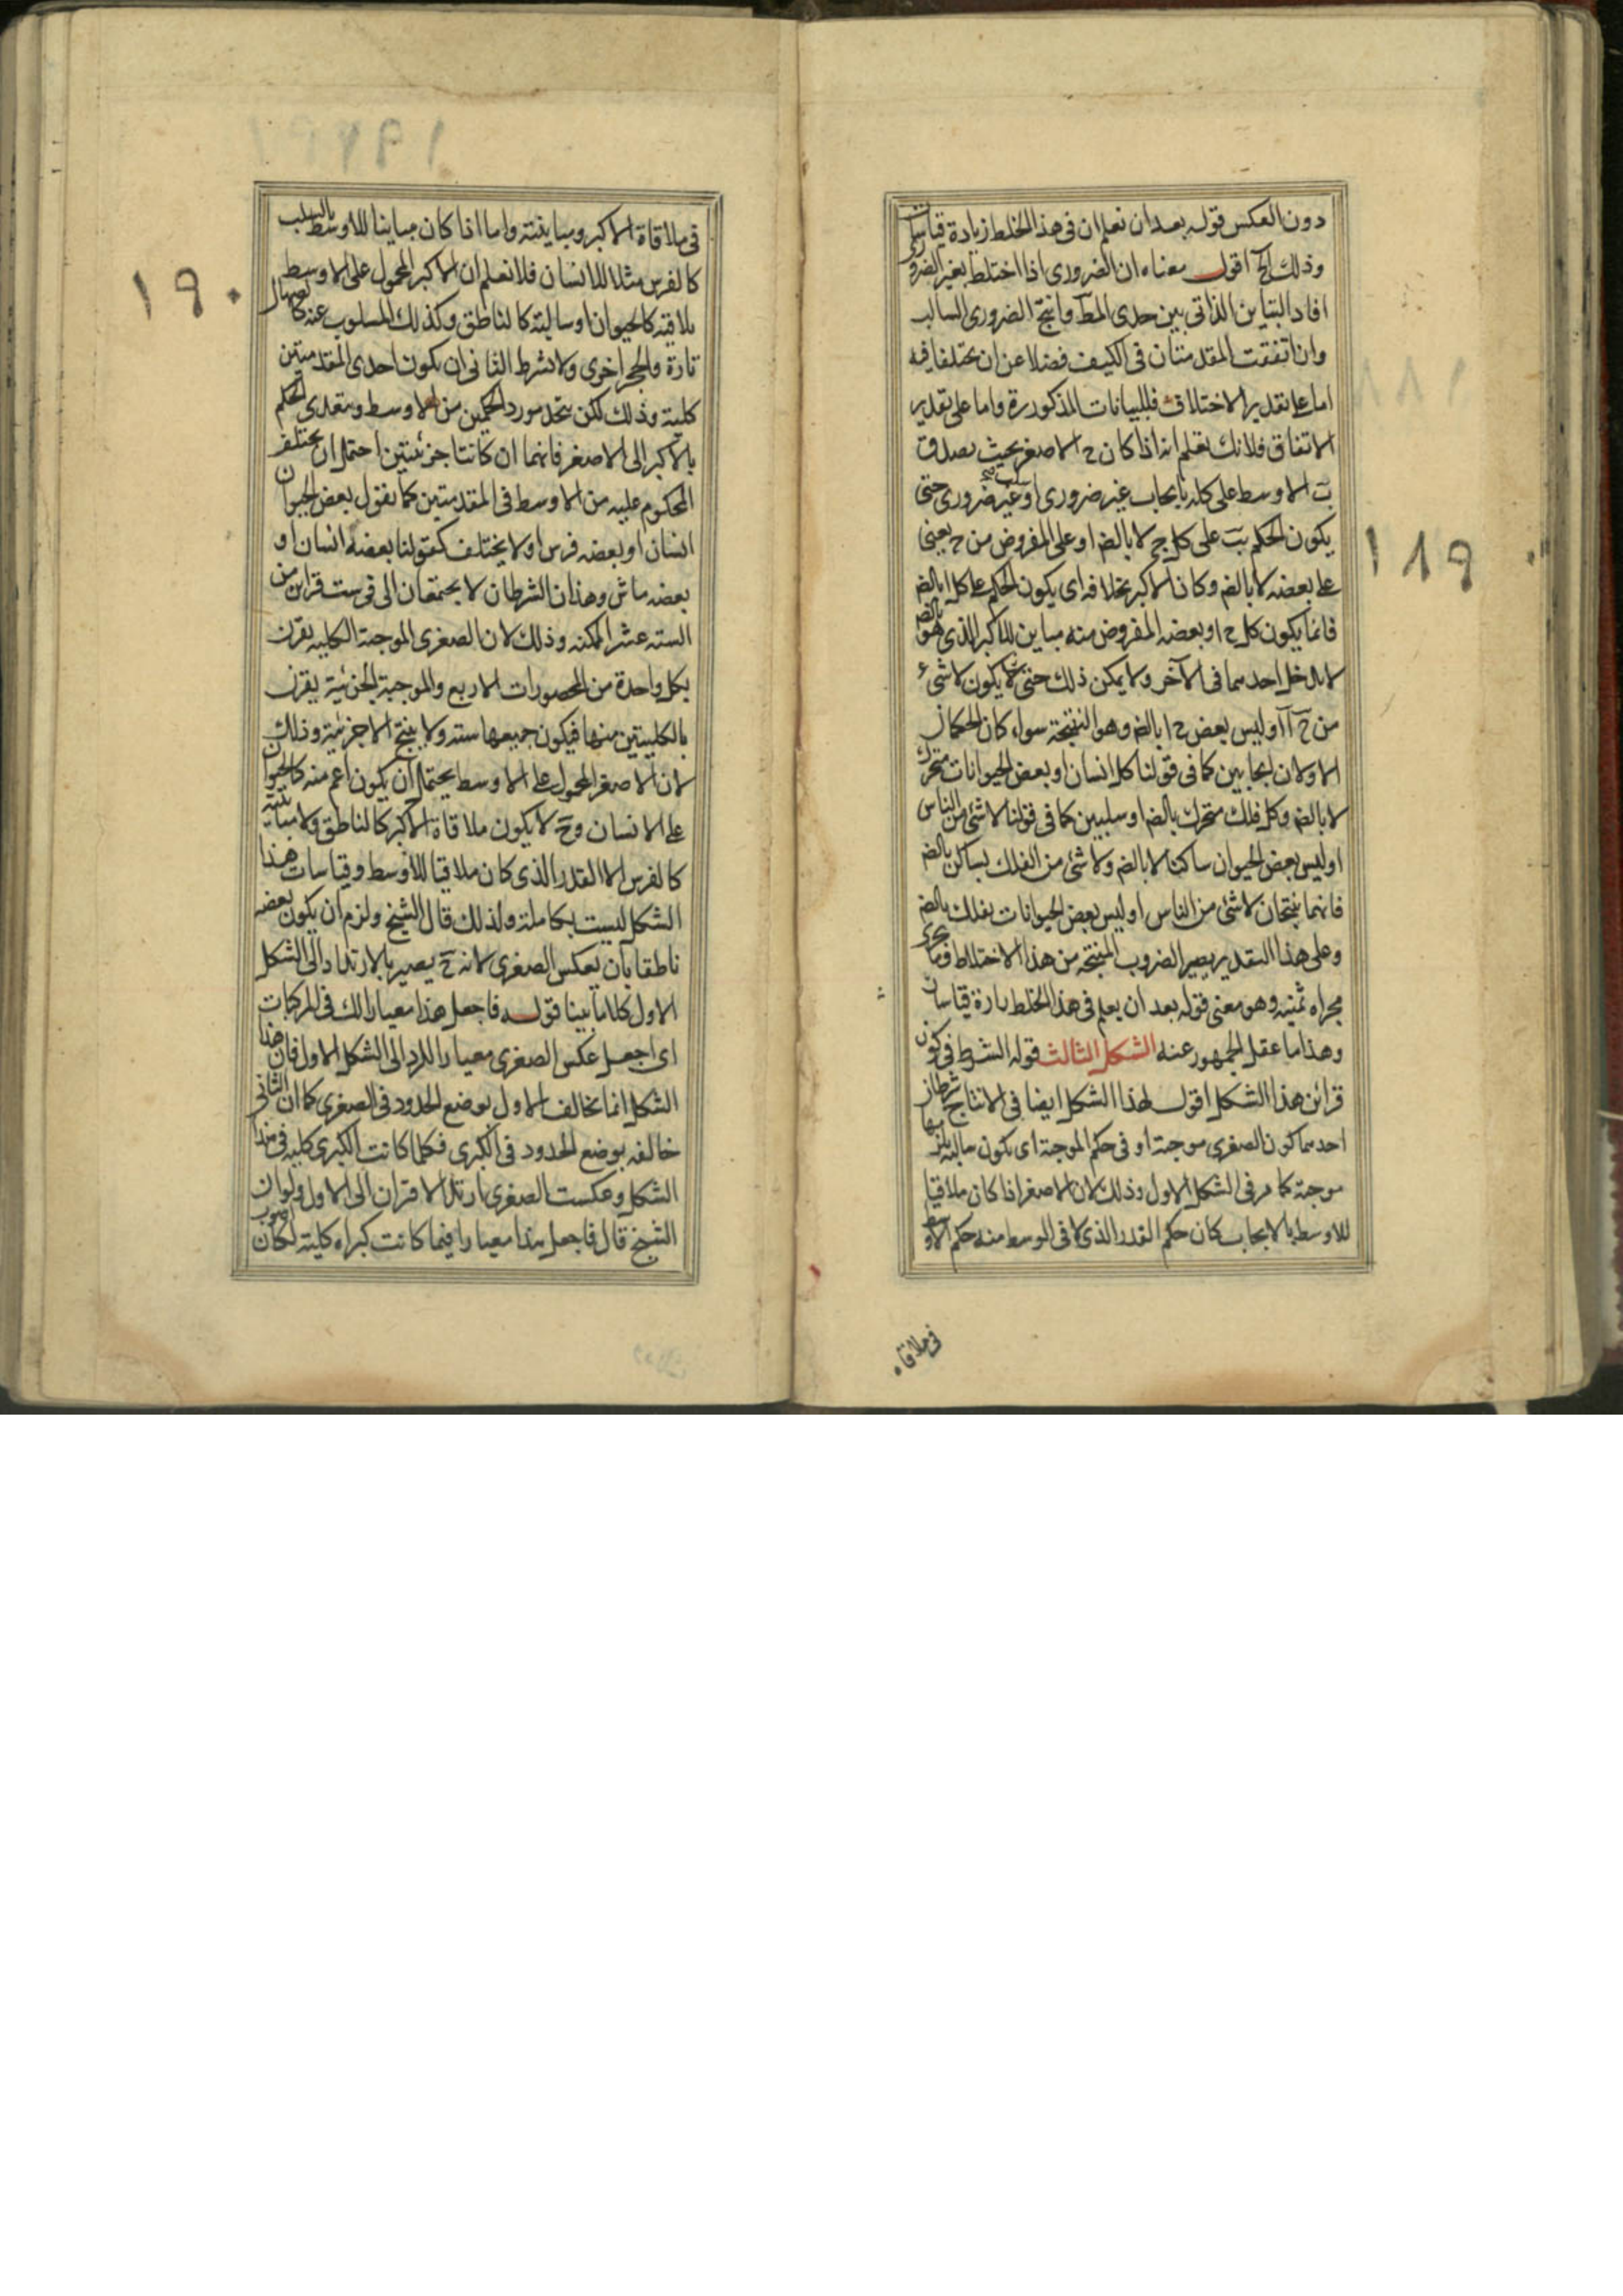 دون العكس قوله بعد ان نعلم ان فى هذا الخلط زيادة قياسات
وذلك الخ اقول معناه ان الضرورى اذا اختلط بغير الضرورى
افاد التباين الذاتى بين حدى المط وانتج الضرورى السالب
وان اتفقت المقدمتان فى الكيف فضلا عن ان يختلفا فيه
اما على تقدير الاختلاف فللبيانات المذكورة واما على تقدير
الاتفاق فلانك تعلم انه اذا كان ح الاصغر بحيث يصدق
ب الاوسط على كله بايجاب غير ضرورى او سلب غير ضرورى حتى
يكون الحكم بب على كل ج لا بالضر او على المفروض من ح يعنى
على بعضه لا بالضر وكان الاكبر بخلافه اى يكون الحكم على كل ا بالضر
فانما يكون كل ح او بعضه المفروض منه مباين للاكبر الذى هو بالضر
لا يدخل احدهما فى الآخر ولا يمكن ذلك حتى لا يكون لا شىء
من ح ا او ليس بعض ح ا بالضر وهو النتيجة سواء كان الحكمان
الاولان ايجابيين كما فى قولنا كل انسان او بعض الحيوانات متحرك
لا بالضر وكل فلك متحرك بالضر او سلبيين كما فى قولنا لا شئ من الناس
او ليس بعض الحيوان ساكنا لا بالضر ولا شئ من الفلك بساكن بالضر
فانهما ينتجان لا شئ من الناس او ليس بعض الحيوانات بفلك بالضر
وعلى هذا التقدير يصير الضروب المنتجة من هذا الاختلاط وما يجرى
مجراه ثمنيه وهو معنى قوله بعد ان يعلم فى هذا الخلط زيادة قياسات
وهذا ما غفل الجمهور عنه الشكل الثالث قوله الشرط فى كون
قرائن هذا الشكل اقول لهذا الشكل ايضا فى الانتاج شرطان
احدهما كون الصغرى موجبة او فى حكم الموجبة اى يكون سالبة يلزمها
موجبة كما مر فى الشكل الاول وذلك لان الاصغر اذا كان ملاقيا
للاوسط بالايجاب كان حكم القدر الذى لاقى الوسط منه حكم الاوسط
فى ملاقاه
١٨٩
فى ملاقاة الاكبر ومباينته واما اذا كان مباينا للاوسط بالسلب
كالفرس مثلا للانسان فلا نعلم ان الاكبر المحمول على الاوسط
يلاقيه كالحيوان او سالبته كالناطق وكذلك المسلوب عنه كالصهال
تارة والحجر اخرى والشرط الثانى ان يكون احدى المقدمتين
كلية وذلك لكن يتحد مورد الحكمين من الاوسط ويتعدى الحكم
بالاكبر الى الاصغر فانهما ان كانتا جزئيتين احتمل ان يختلف
المحكوم عليه من الاوسط فى المقدمتين كما نقول بعض الحيوان
انسان او بعضه فرس او لا يختلف كقولنا بعضه انسان او
بعضه ماش وهذان الشرطان لا يجتمعان الى فى ست قراين من
الستة عشر الممكنه وذلك لان الصغرى الموجبة الكليه يقرن
بكل واحدة من المحصورات الاربع والموجبة الجزئية يقرن
بالكليتين منها فيكون جميعها سته ولا ينتج الا جزئية وذلك
لان الاصغر المحمول على الاوسط يحتمل ان يكون اعم منه كالحيوان
على الانسان وح لا يكون ملاقاة الاكبر كالناطق ولا مباينته
كالفرس الا القدر الذى كان ملاقيا للاوسط وقياسات هذا
الشكل ليست بكاملة ولذلك قال الشيخ ولزم ان يكون بعضه
ناطقا بان يعكس الصغرى لانه ح يصير بالارتداد الى الشكل
الاول كلاما بينا قوله فاجعل هذا معيارا لك فى المركبات
اى اجعل عكس الصغرى معيارا للرد الى الشكل الاول فان هذا
الشكل انما تخالف الاول بوضع الحدود فى الصغرى كما ان الثانى
خالفه بوضع الحدود فى الكبرى فكلما كانت الكبرى كليه فى هذا
الشكل وعكست الصغرى ارتد الاقتران الى الاول ولو ان
الشيخ قال فاجعل هذا معيارا فيما كانت كبراه كلية لكان اصوب
١٩٠